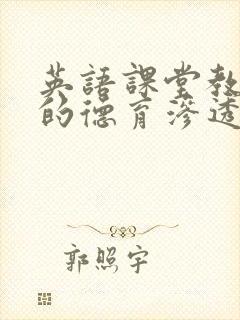 英語課堂教
的德育滲透
郭照宇